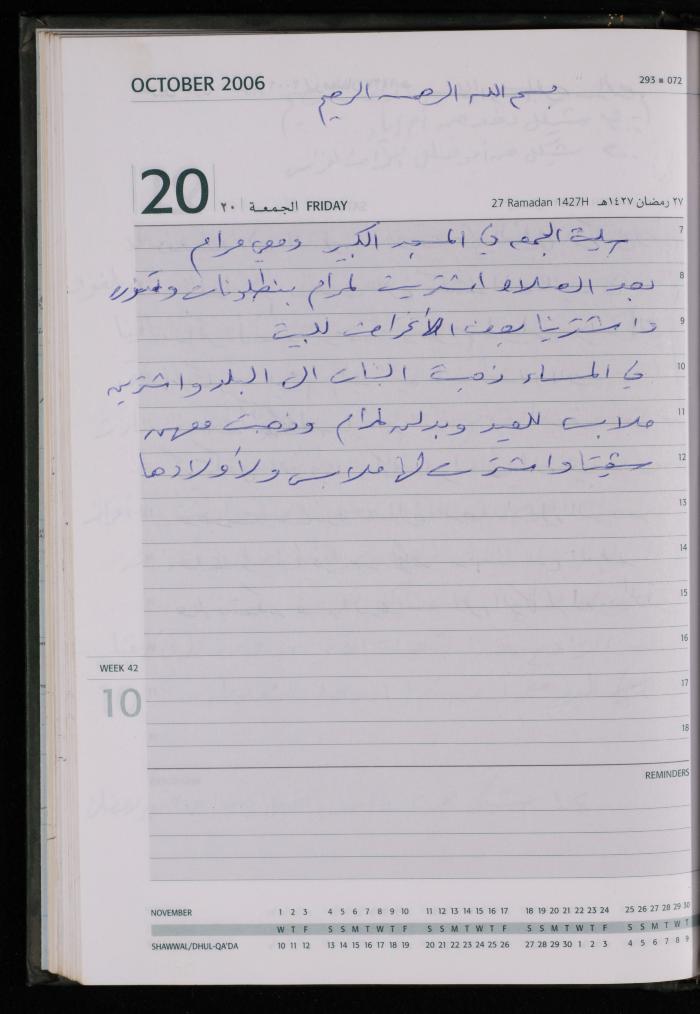 OCTOBER 2006
293 ■ 072
بسم الله الرحمن الرحيم
20 ٢٠ الجمعة FRIDAY
27 Ramadan 1427H ٢٧ رمضان ١٤٢٧هـ
7
صليت الجمعه في المسجد الكبير ومعي مرام
8
بعد الصلاه اشتريت لمرام بنطلونات
9
واشترينا بعض الأغراض للبيت
10
في المساء ذهبت البنات الى البلد واشترين
11
ملابس للعيد وبدلن لمرام وذهبت معهن
12
واشترت لها ملابس ولأولادها
13
14
15
16
WEEK 42
10
17
18
REMINDERS
NOVEMBER 1 2 3 4 5 6 7 8 9 10 11 12 13 14 15 16 17 18 19 20 21 22 23 24 25 26 27 28 29 30
W T F S S M T W T F S S M T W T F S S M T W T F S S M T W T
SHAWWAL/DHUL-QA'DA 10 11 12 13 14 15 16 17 18 19 20 21 22 23 24 25 26 27 28 29 30 1 2 3 4 5 6 7 8 9